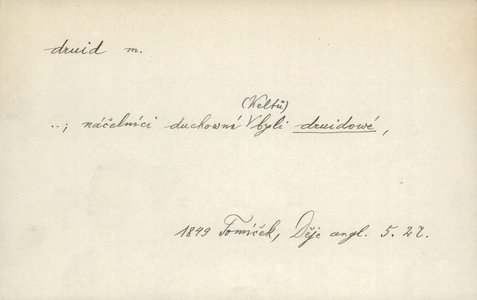 druid m.
(Keltů)
..; náčelníci duchovní V byli druidové,
1849 Tomíček, Děje angl. 5. 27.